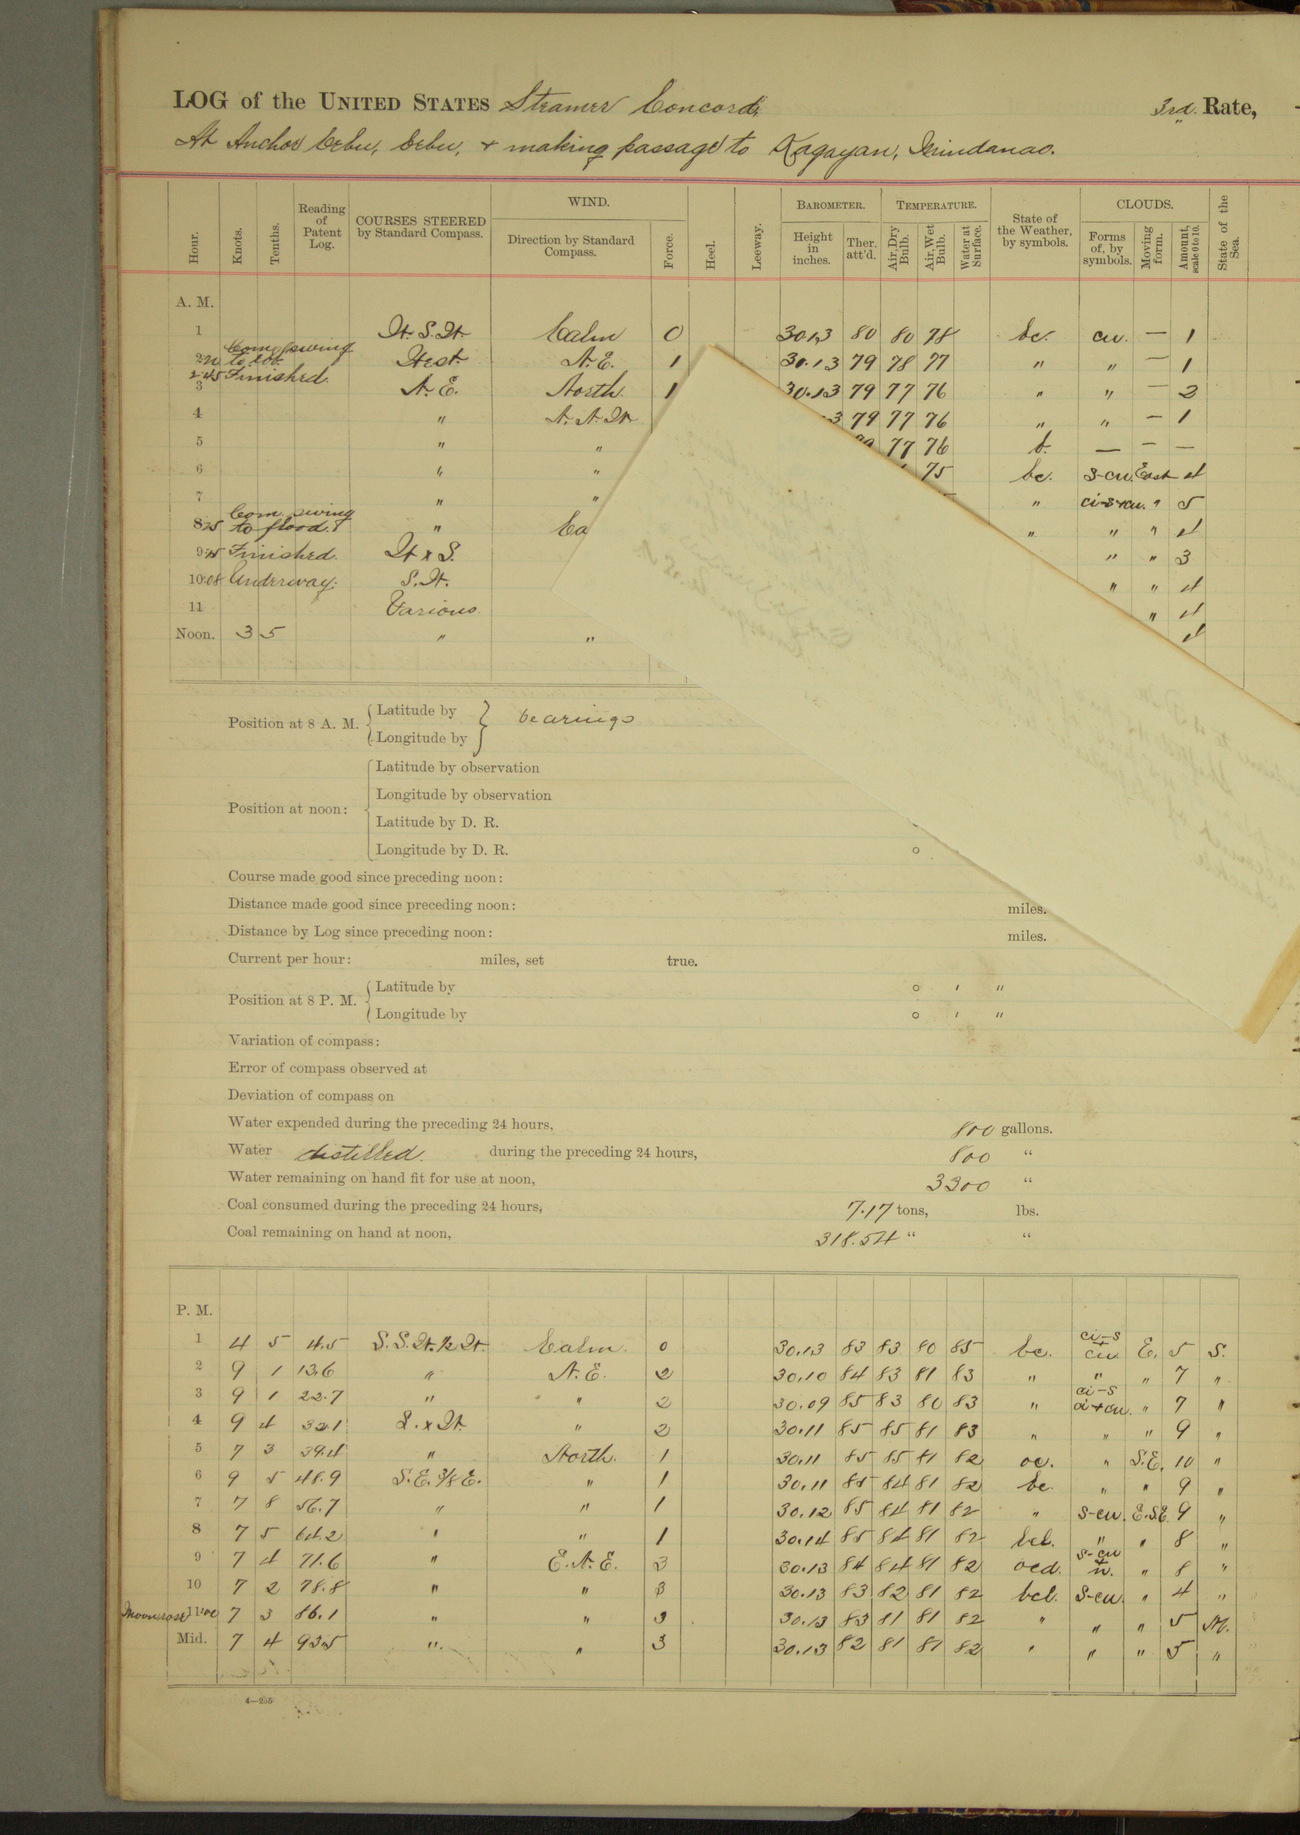 LOG of the UNITED STATES Steamer Concord, 3rd. Rate,
At Anchor Cebu, Cebu, & making passage to Kagayan, Mindanao.
Hour. Knots. Tenths. Reading of Patent Log. COURSES STEERED by Standard Compass. WIND. Direction by Standard Compass. Force. Heel. Leeway. BAROMETER. Height in inches. Ther. att'd. TEMPERATURE. Air, Dry Bulb. Air, Wet Bulb. Water at Surface. State of the Weather, by symbols. CLOUDS. Forms of, by symbols. Moving form. Amount, scale 0 to 10. State of the Sea.
A. M.
1 W. S. W. Calm 0 30.13 80 80 78 bc. cu. — 1
2.20 Com. swing to ebb. West. N. E. 1 30.13 79 78 77 " " — 1
2.45 Finished.
3 N. E. North. 1 30.13 79 77 76 " " — 2
4 " N. N. W. 3 79 77 76 " " — 1
5 " " 77 76 b. — — —
6 " " 75 bc. s-cu. East 4
7 " " " ci-s+cu. " 5
8.25 Com. swing to flood. " Ca " " " 4
9.45 Finished. W x S. " " 3
10:08 Underway. S. W. " " 4
11 Various. " 4
Noon. 3 5 " " 4
Position at 8 A. M. Latitude by
Longitude by
bearings
Position at noon: Latitude by observation
Longitude by observation
Latitude by D. R.
Longitude by D. R. °
Course made good since preceding noon:
Distance made good since preceding noon: miles.
Distance by Log since preceding noon: miles.
Current per hour: miles, set true.
Position at 8 P. M. Latitude by ° ′ ″
Longitude by ° ′ ″
Variation of compass:
Error of compass observed at
Deviation of compass on
Water expended during the preceding 24 hours, 800 gallons.
Water distilled. during the preceding 24 hours, 800 "
Water remaining on hand fit for use at noon, 3300 "
Coal consumed during the preceding 24 hours, 7.17 tons, lbs.
Coal remaining on hand at noon, 318.54 " "
P. M.
1 4 5 4.5 S. S. W. 1/2 W. Calm. 0 30.13 83 83 80 85 bc. ci-s + cu. E. 5 S.
2 9 1 13.6 " N. E. 2 30.10 84 83 81 83 " " " 7 "
3 9 1 22.7 " " 2 30.09 85 83 80 83 " ci-s ci+cu. " 7 "
4 9 4 32.1 S. x W. " 2 30.11 85 85 81 83 " " " 9 "
5 7 3 39.4 " North. 1 30.11 85 85 81 82 oc. " S.E. 10 "
6 9 5 48.9 S. E. 3/8 E. " 1 30.11 85 84 81 82 bc. " " 9 "
7 7 8 56.7 " " 1 30.12 85 84 81 82 " s-cu. E.S.E. 9 "
8 7 5 64.2 " " 1 30.14 85 84 81 82 bcl. " " 8 "
9 7 4 71.6 " E. N. E. 3 30.13 84 84 81 82 ocd. s-cu + n. " 8 "
10 7 2 78.8 " " 3 30.13 83 82 81 82 bcl. s-cu. " 4 "
Moonrose 11:00 7 3 86.1 " " 3 30.13 83 81 81 82 " " " 5 M.
Mid. 7 4 93.5 " " 3 30.13 82 81 81 82 " " " 5 "
4—255